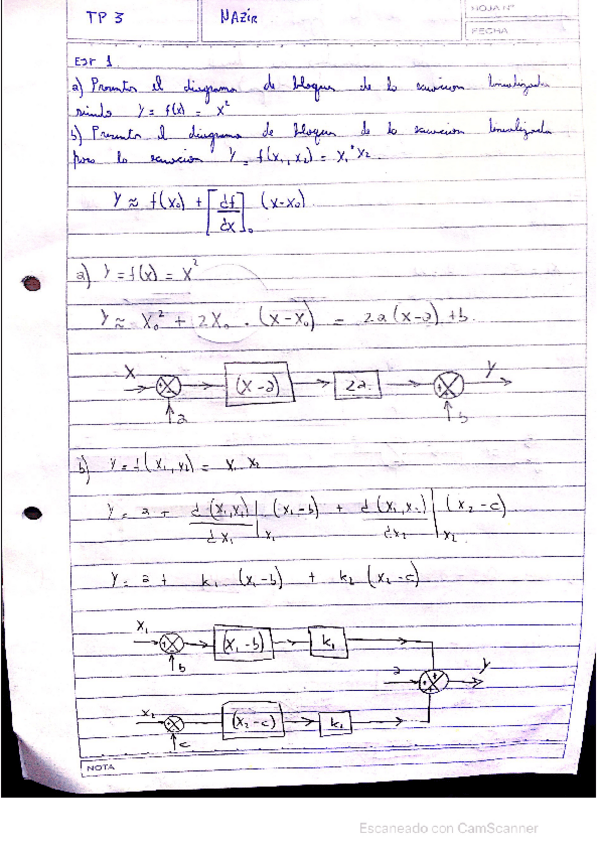 TP 3
NAZIR
HOJA Nº
FECHA
EJR 1
a) Presentar el diagrama de bloques de la ecuacion linealizada
siendo y = f(x) = x²
b) Presentar el diagrama de bloques de la ecuacion linealizada
para la ecuacion y = f(x₁, x₂) = x₁ · x₂
y ≈ f(x₀) + [df/dx]₀ (x-x₀)
a) y = f(x) = x²
y ≈ x₀² + 2x₀ · (x-x₀) = 2a(x-a) + b
x
(x-a)
2a
y
a
b
b) y = f(x₁, x₂) = x₁ x₂
y = a + d(x₁,x₂)/dx₁ |x₁ (x₁-b) + d(x₁,x₂)/dx₂ |x₂ (x₂-c)
y = a + k₁ (x₁-b) + k₂ (x₂-c)
x₁
(x₁-b)
k₁
b
a
y
x₂
(x₂-c)
c
NOTA
Escaneado con CamScanner